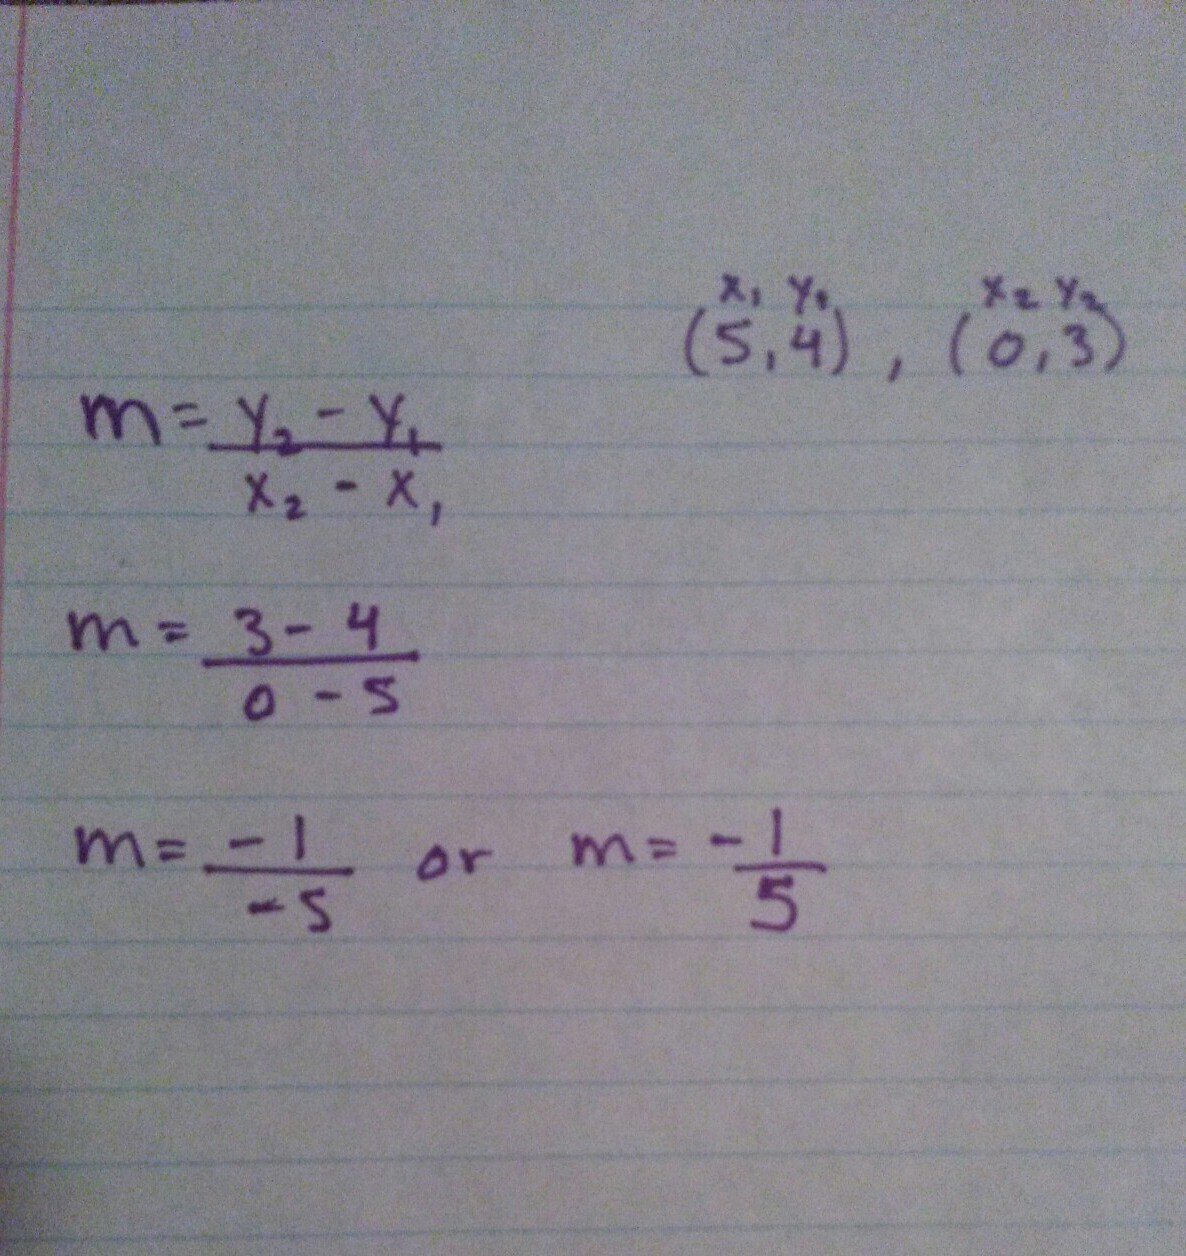 x₁ y₁ x₂ y₂
(5,4) , (0,3)
m = y₂ - y₁
x₂ - x₁
m = 3 - 4
0 - 5
m = -1 or m = -1
-5 5